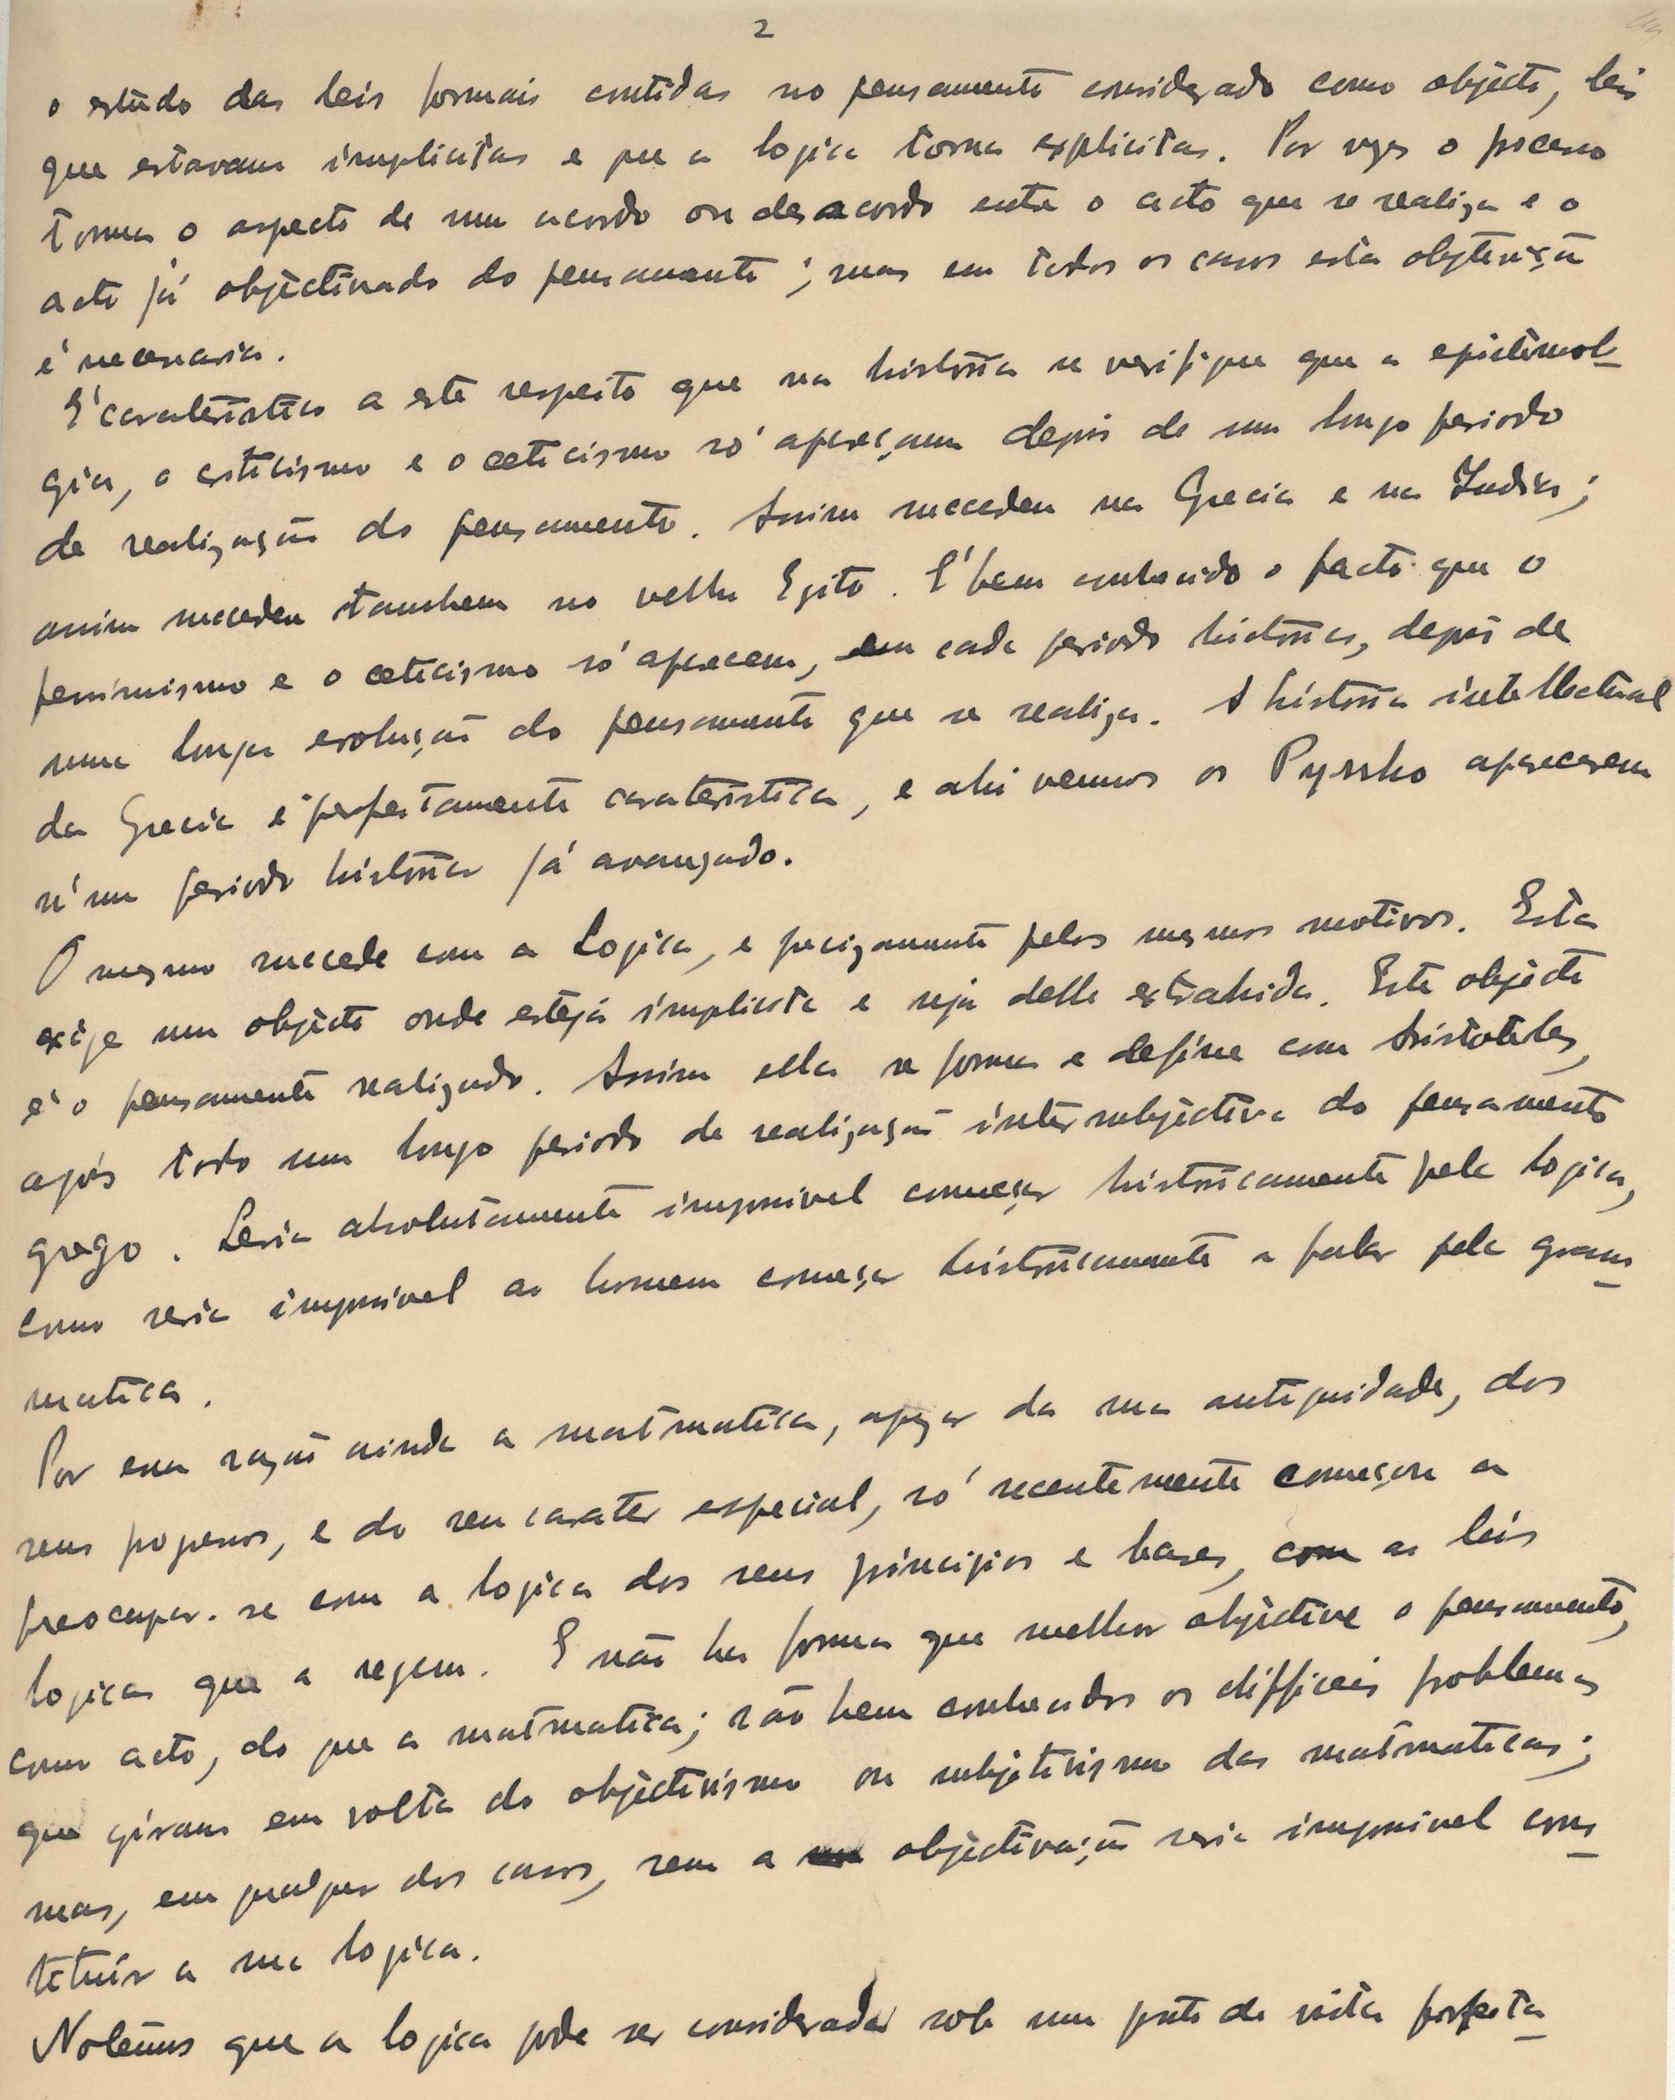 2
o estudo das leis formais contidas no pensamento considerado como objecto, leis
que estavam implicitas e que a logica torna explicitas. Por vezes o processo
toma o aspecto de um acordo ou desacordo entre o acto que se realiza e o
acto já objectivado do pensamento; mas em todos os casos esta objectivação
é necessaria.
É caraterístico a este respeito que na história se verifique que a epistemolo-
gia, o criticismo e o ceticismo só apareçam depois de um longo periodo
de realização do pensamento. Assim succedeu na Grecia e na India;
assim succedeu tambem no velho Egito. É bem conhecido o facto que o
pessimismo e o ceticismo só aparecem, em cada periodo histórico, depois de
uma longa evolução do pensamento que se realiza. A história intellectual
da Grecia é perfeitamente caraterística, e ahi vemos os Pyrrho aparecerem
n'um periodo histórico já avançado.
O mesmo succede com a Logica, e precizamente pelos mesmos motivos. Esta
exige um objecto onde esteja implicita e seja delle extrahida. Este objecto
é o pensamento realizado. Assim ella se forma e define com Aristoteles,
após todo um longo periodo de realização intersubjectiva do pensamento
grego. Seria absolutamente impossivel começar históricamente pela logica,
como seria impossivel ao homem começar históricamente a falar pela gram-
matica.
Por essa razão ainda a matmatica, apezar da sua antiguidade, dos
seus progressos, e do seu carater especial, só recentemente começou a
preocupar-se com a logica dos seus principios e bases, com as leis
logicas que a regem. E não ha forma que melhor objective o pensamento,
como acto, do que a matmatica; são bem conhecidos os difficeis problemas
que giram em volta do objectivismo ou subjetivismo das matmaticas;
mas, em qualquer dos casos, sem a objectivação seria impossivel cons-
tituir a sua logica.
Notemos que a logica pode ser considerada sob um ponto de vista perfeita-